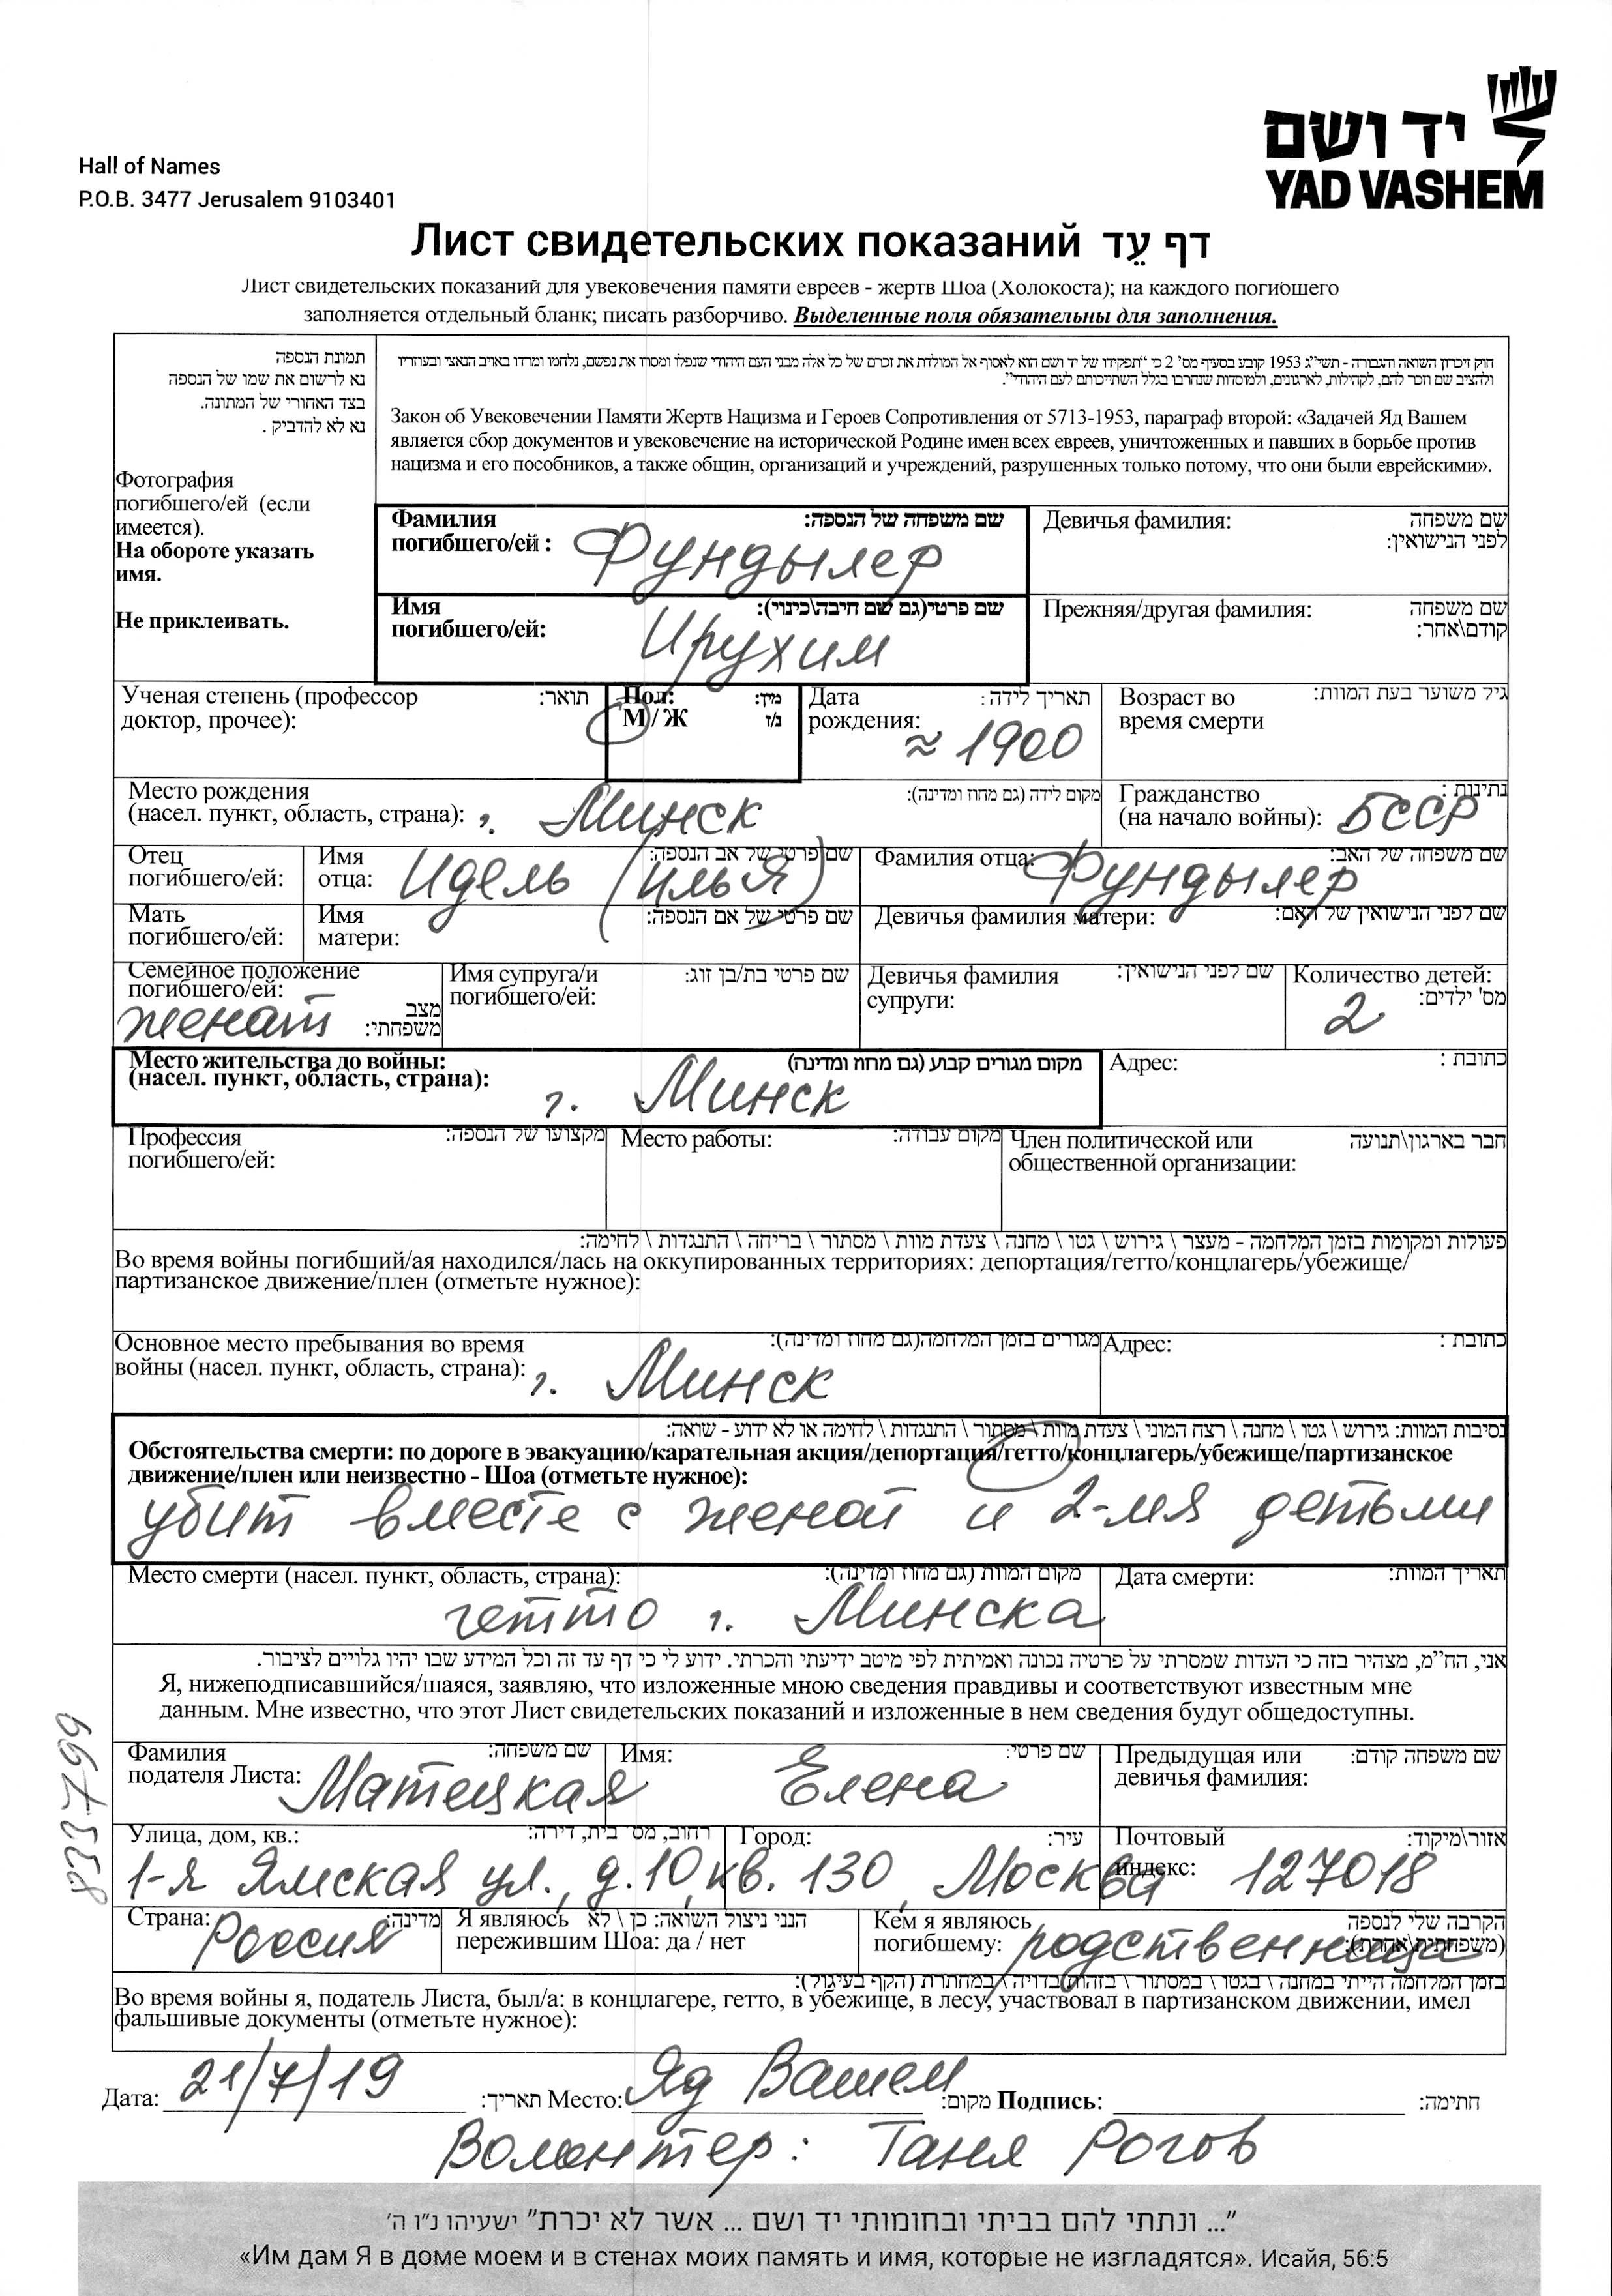 יד ושם
YAD VASHEM
Hall of Names
P.O.B. 3477 Jerusalem 9103401
Лист свидетельских показаний דף עֵד
Лист свидетельских показаний для увековечения памяти евреев - жертв Шоа (Холокоста); на каждого погибшего
заполняется отдельный бланк; писать разборчиво. Выделенные поля обязательны для заполнения.
תמונת הנספה
נא לרשום את שמו של הנספה
בצד האחורי של המתונה.
נא לא להדביק .
Фотография
погибшего/ей (если
имеется).
На обороте указать
имя.
Не приклеивать.
חוק זיכרון השואה והגבורה - תשי"ג 1953 קובע בסעיף מס' 2 כי "תפקידו של יד ושם הוא לאסוף אל המולדת את זכרם של כל אלה מבני העם היהודי שנפלו ומסרו את נפשם, נלחמו ומרדו באויב הנאצי ובעוזריו
ולהציב שם וזכר להם, לקהילות, לארגונים, ולמוסדות שנחרבו בגלל השתייכותם לעם היהודי".
Закон об Увековечении Памяти Жертв Нацизма и Героев Сопротивления от 5713-1953, параграф второй: «Задачей Яд Вашем
является сбор документов и увековечение на исторической Родине имен всех евреев, уничтоженных и павших в борьбе против
нацизма и его пособников, а также общин, организаций и учреждений, разрушенных только потому, что они были еврейскими».
Фамилия погибшего/ей : שם משפחה של הנספה: Фундылер
Девичья фамилия: שם משפחה לפני הנישואין:
Имя погибшего/ей: שם פרטי(גם שם חיבה\כינוי): Ирухим
Прежняя/другая фамилия: שם משפחה קודם\אחר:
Ученая степень (профессор доктор, прочее): תואר:
Пол: מין: М / Ж ז/נ
Дата рождения: תאריך לידה: ≈ 1900
Возраст во время смерти גיל משוער בעת המוות:
Место рождения (насел. пункт, область, страна): מקום לידה (גם מחוז ומדינה): г. Минск
Гражданство (на начало войны): נתינות : БССР
Отец погибшего/ей: Имя отца: שם פרטי של אב הנספה: Идель (Илья)
Фамилия отца: שם משפחה של האב: Фундылер
Мать погибшего/ей: Имя матери: שם פרטי של אם הנספה:
Девичья фамилия матери: שם לפני הנישואין של האם:
Семейное положение погибшего/ей: מצב משפחתי: женат
Имя супруга/и погибшего/ей: שם פרטי בת/בן זוג:
Девичья фамилия супруги: שם לפני הנישואין:
Количество детей: מס' ילדים: 2
Место жительства до войны: (насел. пункт, область, страна): מקום מגורים קבוע (גם מחוז ומדינה) г. Минск
Адрес: כתובת :
Профессия погибшего/ей: מקצועו של הנספה:
Место работы: מקום עבודה:
Член политической или общественной организации: חבר בארגון\תנועה
פעולות ומקומות בזמן המלחמה - מעצר \ גירוש \ גטו \ מחנה \ צעדת מוות \ מסתור \ בריחה \ התנגדות \ לחימה:
Во время войны погибший/ая находился/лась на оккупированных территориях: депортация/гетто/концлагерь/убежище/
партизанское движение/плен (отметьте нужное):
Основное место пребывания во время войны (насел. пункт, область, страна): מגורים בזמן המלחמה(גם מחוז ומדינה): г. Минск
Адрес: כתובת :
נסיבות המוות: גירוש \ גטו \ מחנה \ רצח המוני \ צעדת מוות \ מסתור \ התנגדות \ לחימה או לא ידוע - שואה:
Обстоятельства смерти: по дороге в эвакуацию/карательная акция/депортация/гетто/концлагерь/убежище/партизанское
движение/плен или неизвестно - Шоа (отметьте нужное):
убит вместе с женой и 2-мя детьми
Место смерти (насел. пункт, область, страна): מקום המוות (גם מחוז ומדינה): гетто г. Минска
Дата смерти: תאריך המוות:
אני, הח"מ, מצהיר בזה כי העדות שמסרתי על פרטיה נכונה ואמיתית לפי מיטב ידיעתי והכרתי. ידוע לי כי דף עד זה וכל המידע שבו יהיו גלויים לציבור.
Я, нижеподписавшийся/шаяся, заявляю, что изложенные мною сведения правдивы и соответствуют известным мне
данным. Мне известно, что этот Лист свидетельских показаний и изложенные в нем сведения будут общедоступны.
Фамилия подателя Листа: שם משפחה: Матецкая
Имя: שם פרטי: Елена
Предыдущая или девичья фамилия: שם משפחה קודם:
Улица, дом, кв.: רחוב, מס' בית, דירה: 1-я Ямская ул., д. 10, кв. 130,
Город: עיר: Москва
Почтовый индекс: אזור\מיקוד: 127018
Страна: מדינה: Россия
Я являюсь пережившим Шоа: да / нет הנני ניצול השואה: כן \ לא
Кем я являюсь погибшему: הקרבה שלי לנספה (משפחתית\אחרת): родственница
בזמן המלחמה הייתי במחנה \ בגטו \ במסתור \ בזהות בדויה \ במחתרת (הקף בעיגול):
Во время войны я, податель Листа, был/а: в концлагере, гетто, в убежище, в лесу, участвовал в партизанском движении, имел
фальшивые документы (отметьте нужное):
Дата: 21/7/19 תאריך: Место: Яд Вашем מקום: Подпись: חתימה:
Волонтер: Таня Рогов
8337799
"... ונתתי להם בביתי ובחומותי יד ושם ... אשר לא יכרת" ישעיהו נ"ו ה'
«Им дам Я в доме моем и в стенах моих память и имя, которые не изгладятся». Исайя, 56:5